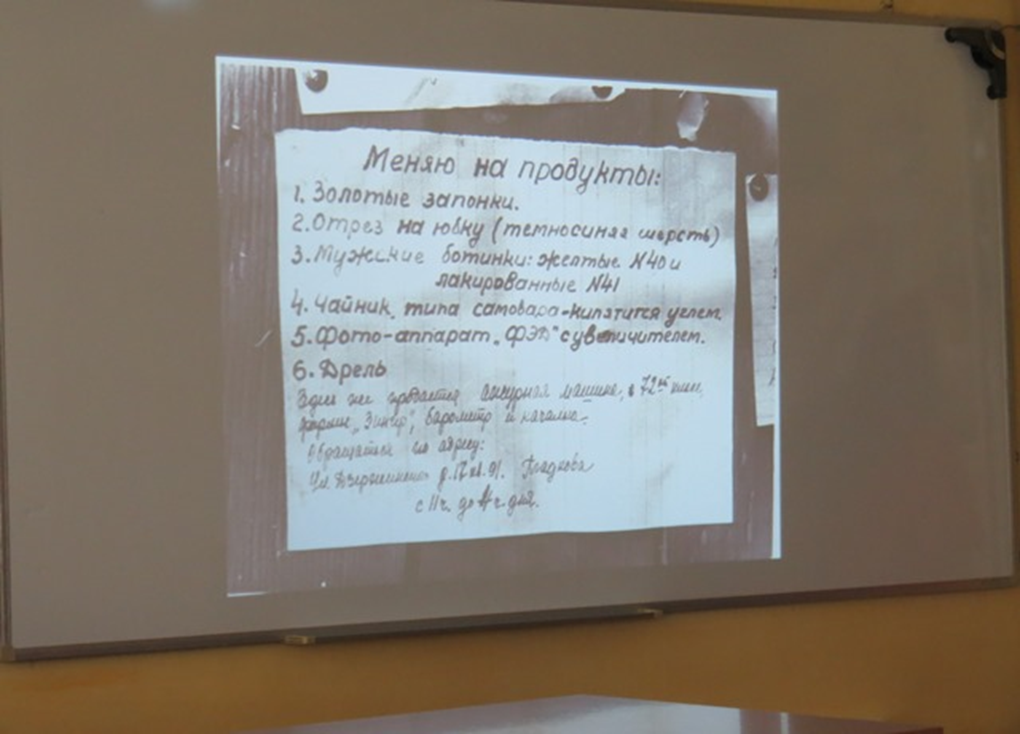 Меняю на продукты:
1. Золотые запонки.
2. Отрез на юбку (темносиняя шерсть)
3. Мужские ботинки: желтые N40 и
лакированные N41
4. Чайник, типа самовара-кипятится углем.
5. Фото-аппарат „ФЭД" с увеличителем.
6. Дрель
Здесь же продается ажурная машина, в 72
фирмы „Зингер", барометр и
Обращаться по адресу:
Ул. Дзержинского д. 17 кв. 91. Гладкова
с 11 ч. до 4 ч. дня.